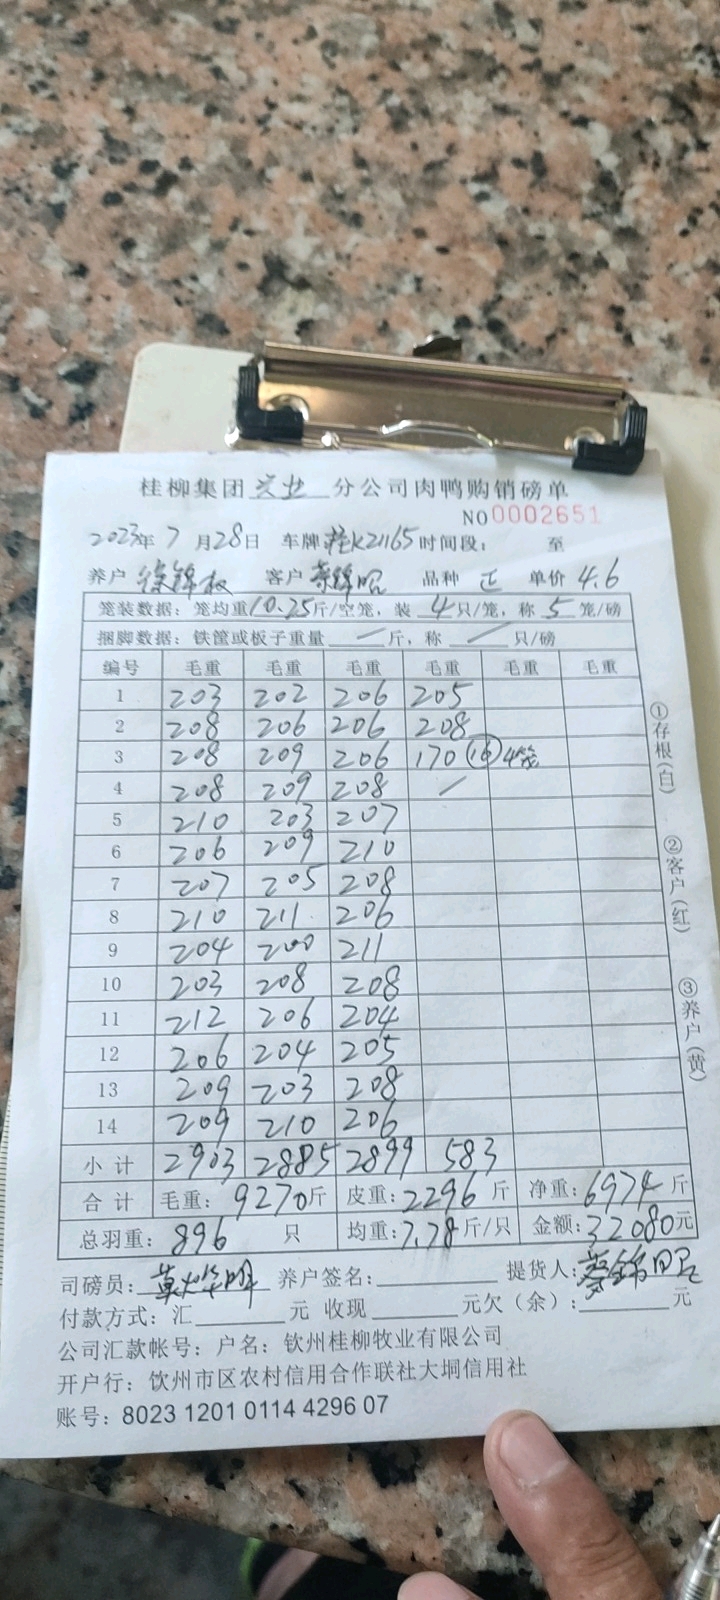 桂柳集团兴业分公司肉鸭购销磅单
NO0002651
2023年7月28日 车牌桂K21165时间段： 至
养户 徐锦权 客户 蔡锦昭 品种 正 单价 4.6
笼装数据：笼均重10.25斤/空笼，装 4只/笼，称 5 笼/磅
捆脚数据：铁筐或板子重量 / 斤，称 / 只/磅
编号 毛重 毛重 毛重 毛重 毛重 毛重
1 203 202 206 205
2 208 206 206 208
3 208 209 206 170 16 4笼
4 208 209 208 /
5 210 203 207
6 206 209 210
7 207 205 208
8 210 211 206
9 204 200 211
10 203 208 208
11 212 206 204
12 206 204 205
13 209 203 208
14 209 210 206
小计 2903 2885 2899 583
合计 毛重：9270斤 皮重：2296斤 净重：6974斤
总羽重：896 只 均重：7.78斤/只 金额：32080元
司磅员： 养户签名： 提货人：蔡锦昭
付款方式：汇 元 收现 元欠（余）： 元
公司汇款帐号：户名：钦州桂柳牧业有限公司
开户行：钦州市区农村信用合作联社大垌信用社
账号：8023 1201 0114 4296 07
①存根（白）
②客户（红）
③养户（黄）